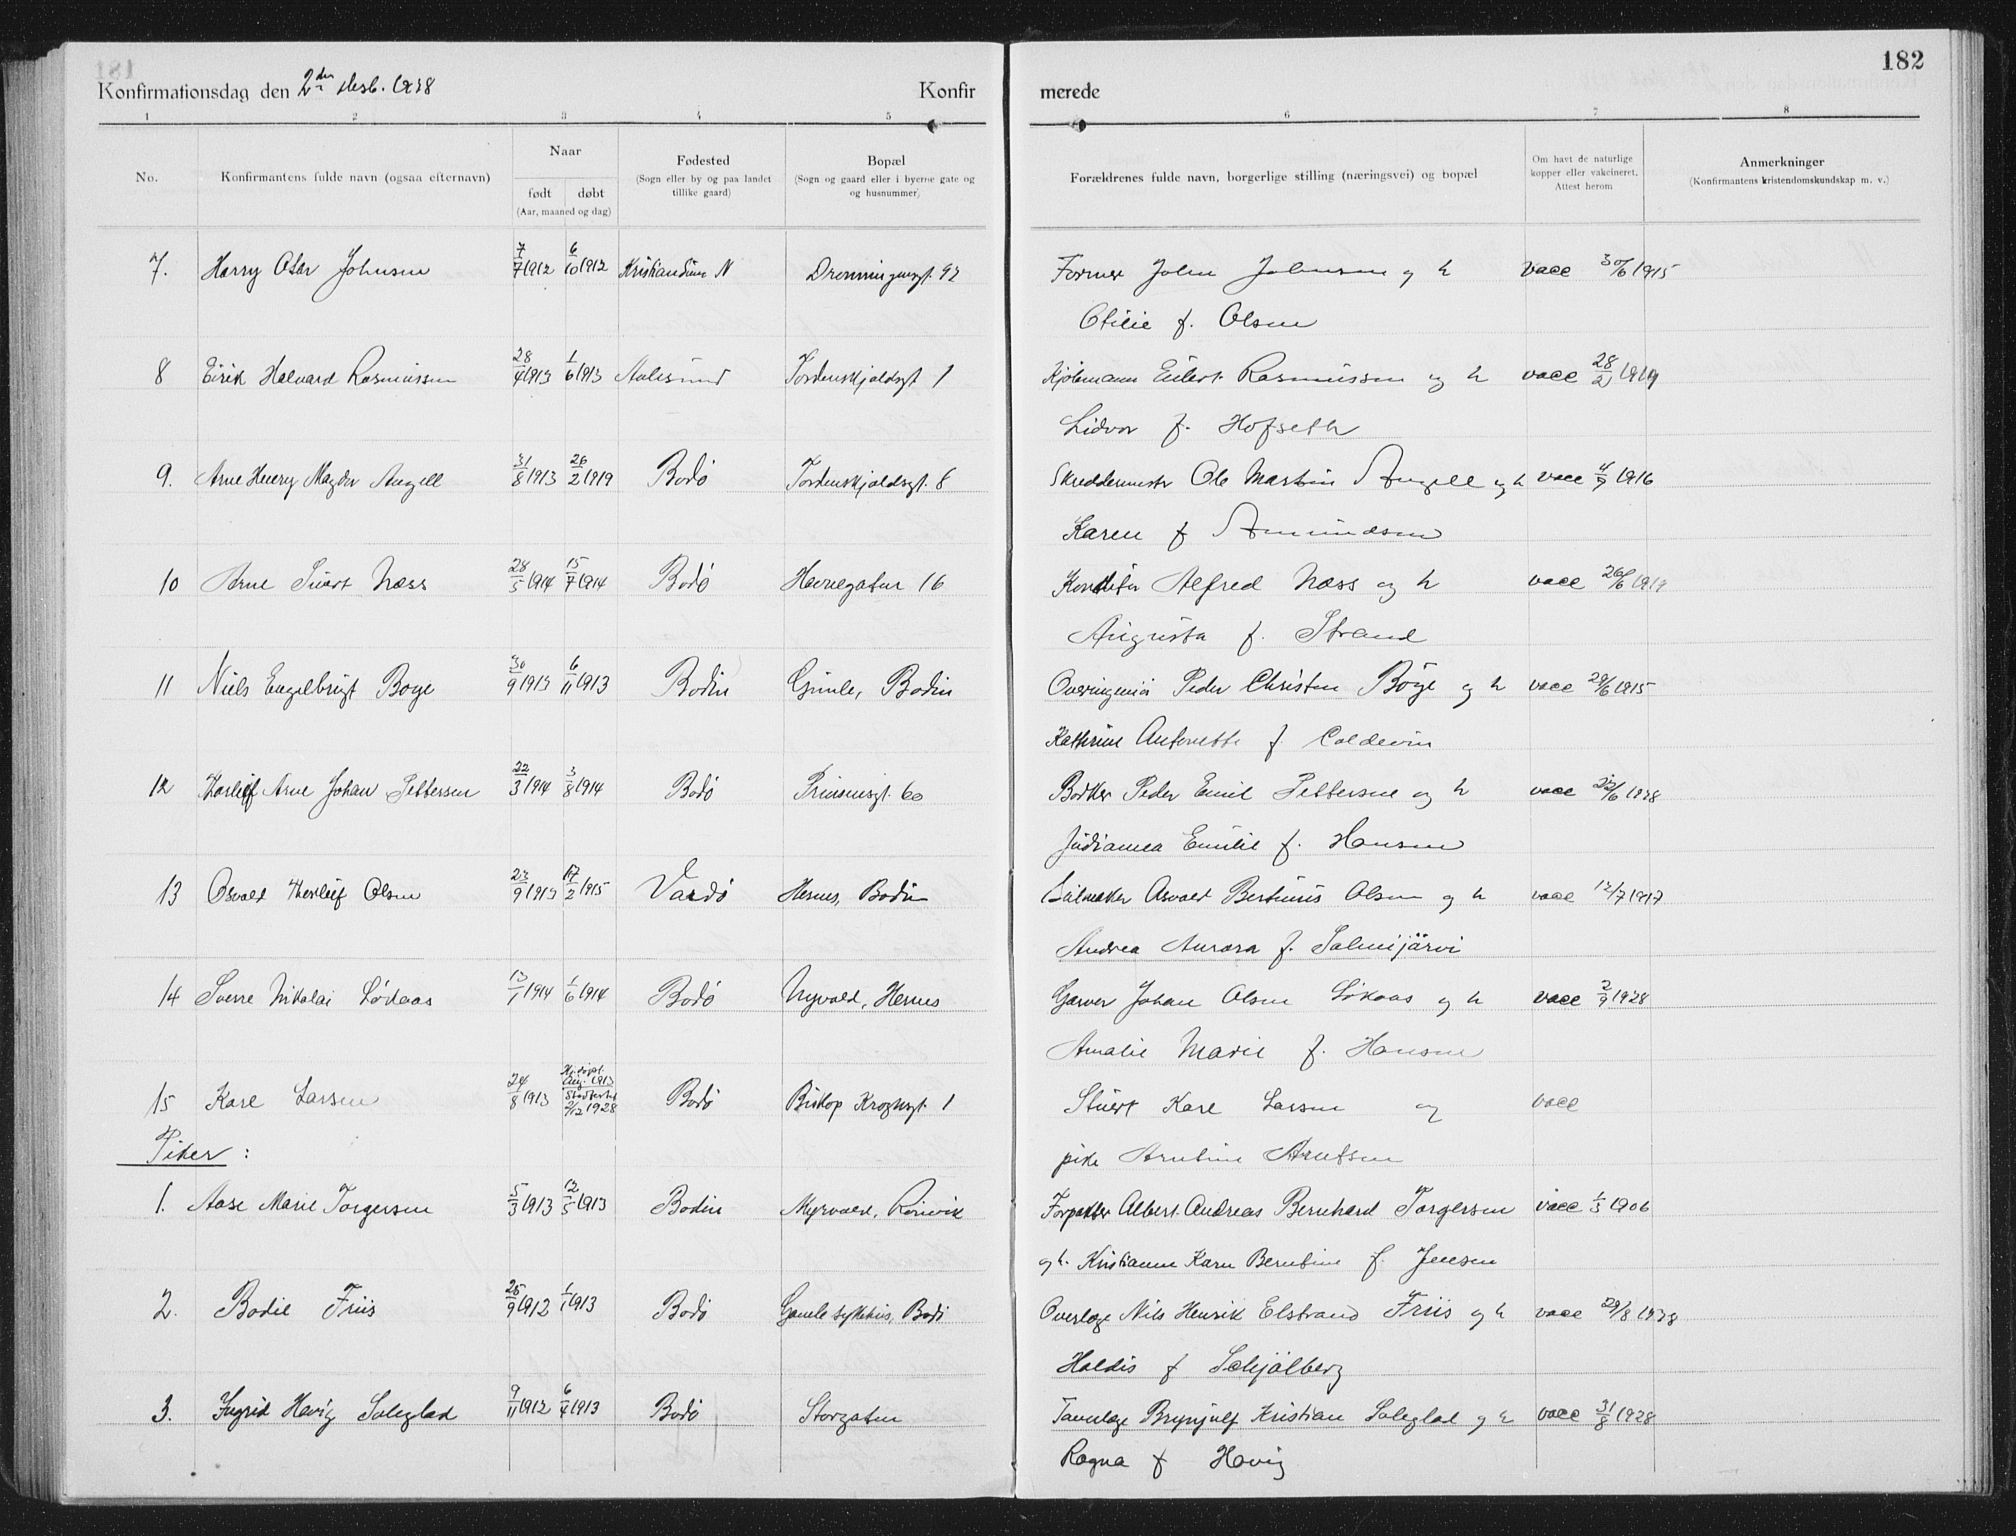 182
Konfirmationsdag den 2den Desb. 1928 Konfir merede
1 2 3 4 5 6 7 8
No. Konfirmantens fulde navn (ogsaa efternavn) Naar født døbt (Aar, maaned og dag) Fødested (Sogn eller by og paa landet tillike gaard) Bopæl (Sogn og gaard eller i byerne gate og og husnummer) Forældrenes fulde navn, borgerlige stilling (næringsvei) og bopæl Om havt de naturlige kopper eller vakcineret. Attest herom Anmerkninger (Konfirmantens kristendomskundskap m. v.)
7. Harry Otar Johnsen 7/7 1912 6/10 1912 Kristiansund N Dronningensgt. 92 Former John Johnsen og h vacc 30/6 1915
Otilie f. Olsen
8 Eirik Halvard Rasmussen 28/4 1913 1/6 1913 Aalesund Tordenskjoldsgt 1 Kjøbmann Eilert Rasmussen og h vacc 28/2 1919
Lidvor f. Hofseth
9. Arne Henry Magdor Angell 31/8 1913 26/2 1919 Bodø Tordenskjoldsgt. 8 Skreddermester Ole Martin Angell og h vacc 4/7 1916
Karen f Amundsen
10 Arne Sivert Næss 28/5 1914 15/7 1914 Bodø Havnegaten 16 Konditor Alfred Næss og h vacc 26/6 1919
Augusta f. Strand
11 Niels Engelbrigt Boye 30/9 1913 6/11 1913 Bodin Gimle, Bodin Overingeniør Peder Christen Böye og h vacc 29/6 1915
Kathrine Antonette f Coldevin
12 Thorleif Arne Johan Pettersen 22/3 1914 3/8 1914 Bodø Prinsensgt. 60 Bødker Peder Emil Pettersen og h vacc 22/6 1928
Judianna Emilie f. Hansen
13 Osvald Thorleif Olsen 23/9 1913 17/2 1915 Vardø Hernes, Bodin Seilmaker Osvald Bertinius Olsen og h vacc 12/7 1917
Andrea Aurora f. Salmijärvi
14 Sverre Nikolai Løkaas 13/1 1914 1/6 1914 Bodø Myrvold, Hernes Garver Johan Olsen Løkaas og h vacc 2/9 1928
Amalie Marie f. Hansen
15 Kare Larsen 24/8 1913 Hj.døpt Aug. 1913 Stadfestet 2/12 1928 Bodø Biskop Krognsgt. 1 Stuert Kare Larsen og vacc
Piker : pike Arntine Arntsen
1. Aase Marie Torgersen 5/3 1913 12/5 1913 Bodin Myrvold, Rønvik Forpakter Albert Andreas Bernhard Torgersen vacc 1/3 1906
og h. Kristianna Karen Berntine f. Jensen
2. Bodil Friis 25/9 1912 1/1 1913 Bodø Gamle sykehus, Bodø Overlæge Nils Henrik Elstrand Friis og h vacc 29/8 1928
Haldis f Schjølberg
3. Ingrid Hovig Soleglad 9/11 1912 6/4 1913 Bodø Storgaten Tannlæge Brynjulf Kristian Soleglad og h vacc 31/8 1928
Ragna f Hovig